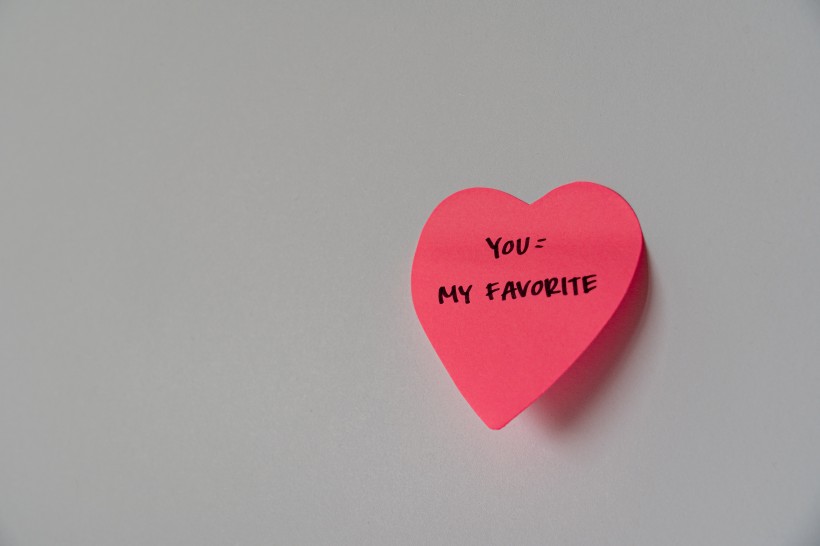 YOU=
MY FAVORITE